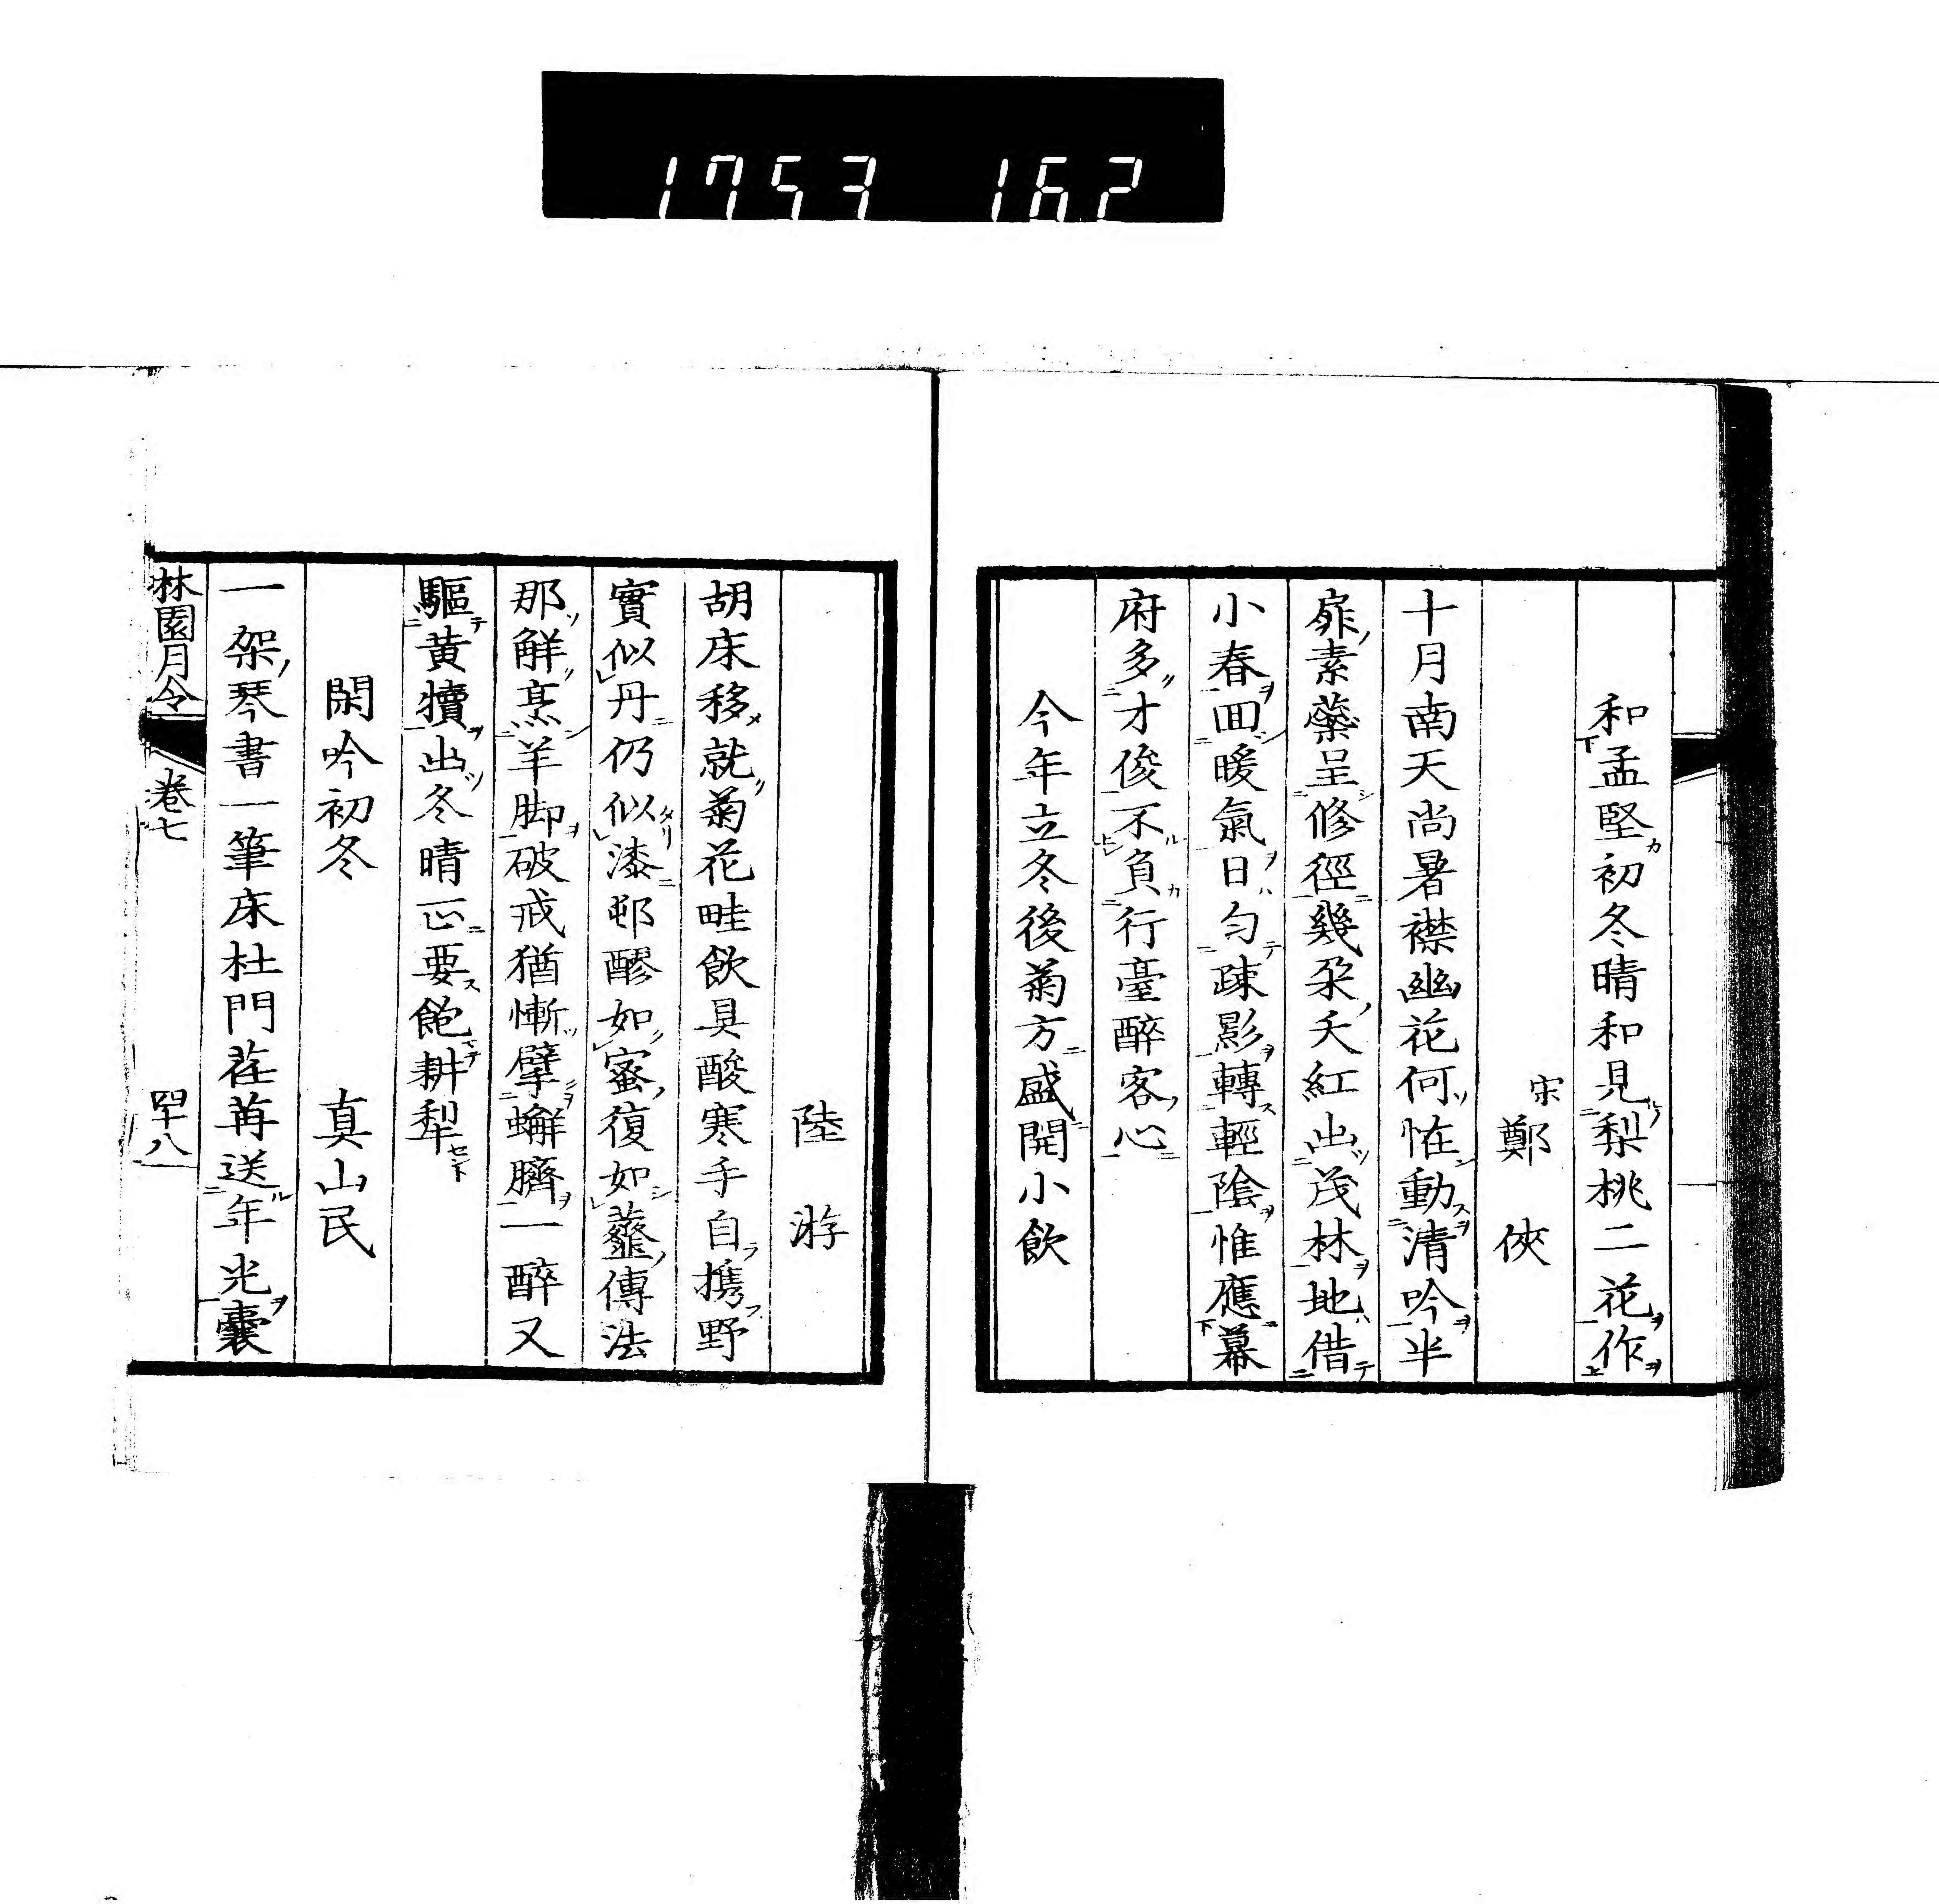 1753 162
和孟堅初冬晴和見梨桃二花作
宋鄭俠
十月南天尚暑襟幽花何恠動清吟半
扉素蘂呈修徑幾朶夭紅出茂林地借
小春回暖氣日勻疎影轉輕陰惟應幕
府多才俊不負行臺醉客心
今年立冬後菊方盛開小飲
陸游
胡床移就菊花畦飲具酸寒手自携野
實似丹仍似漆邨醪如蜜復如虀傳法
那鮮烹羊脚破戒猶慚擘蠏臍一醉又
驅黃犢出冬晴正要飽耕犁
閑吟初冬 真山民
一架琴書一筆床杜門荏苒送年光囊
林園月令 卷七 四十八